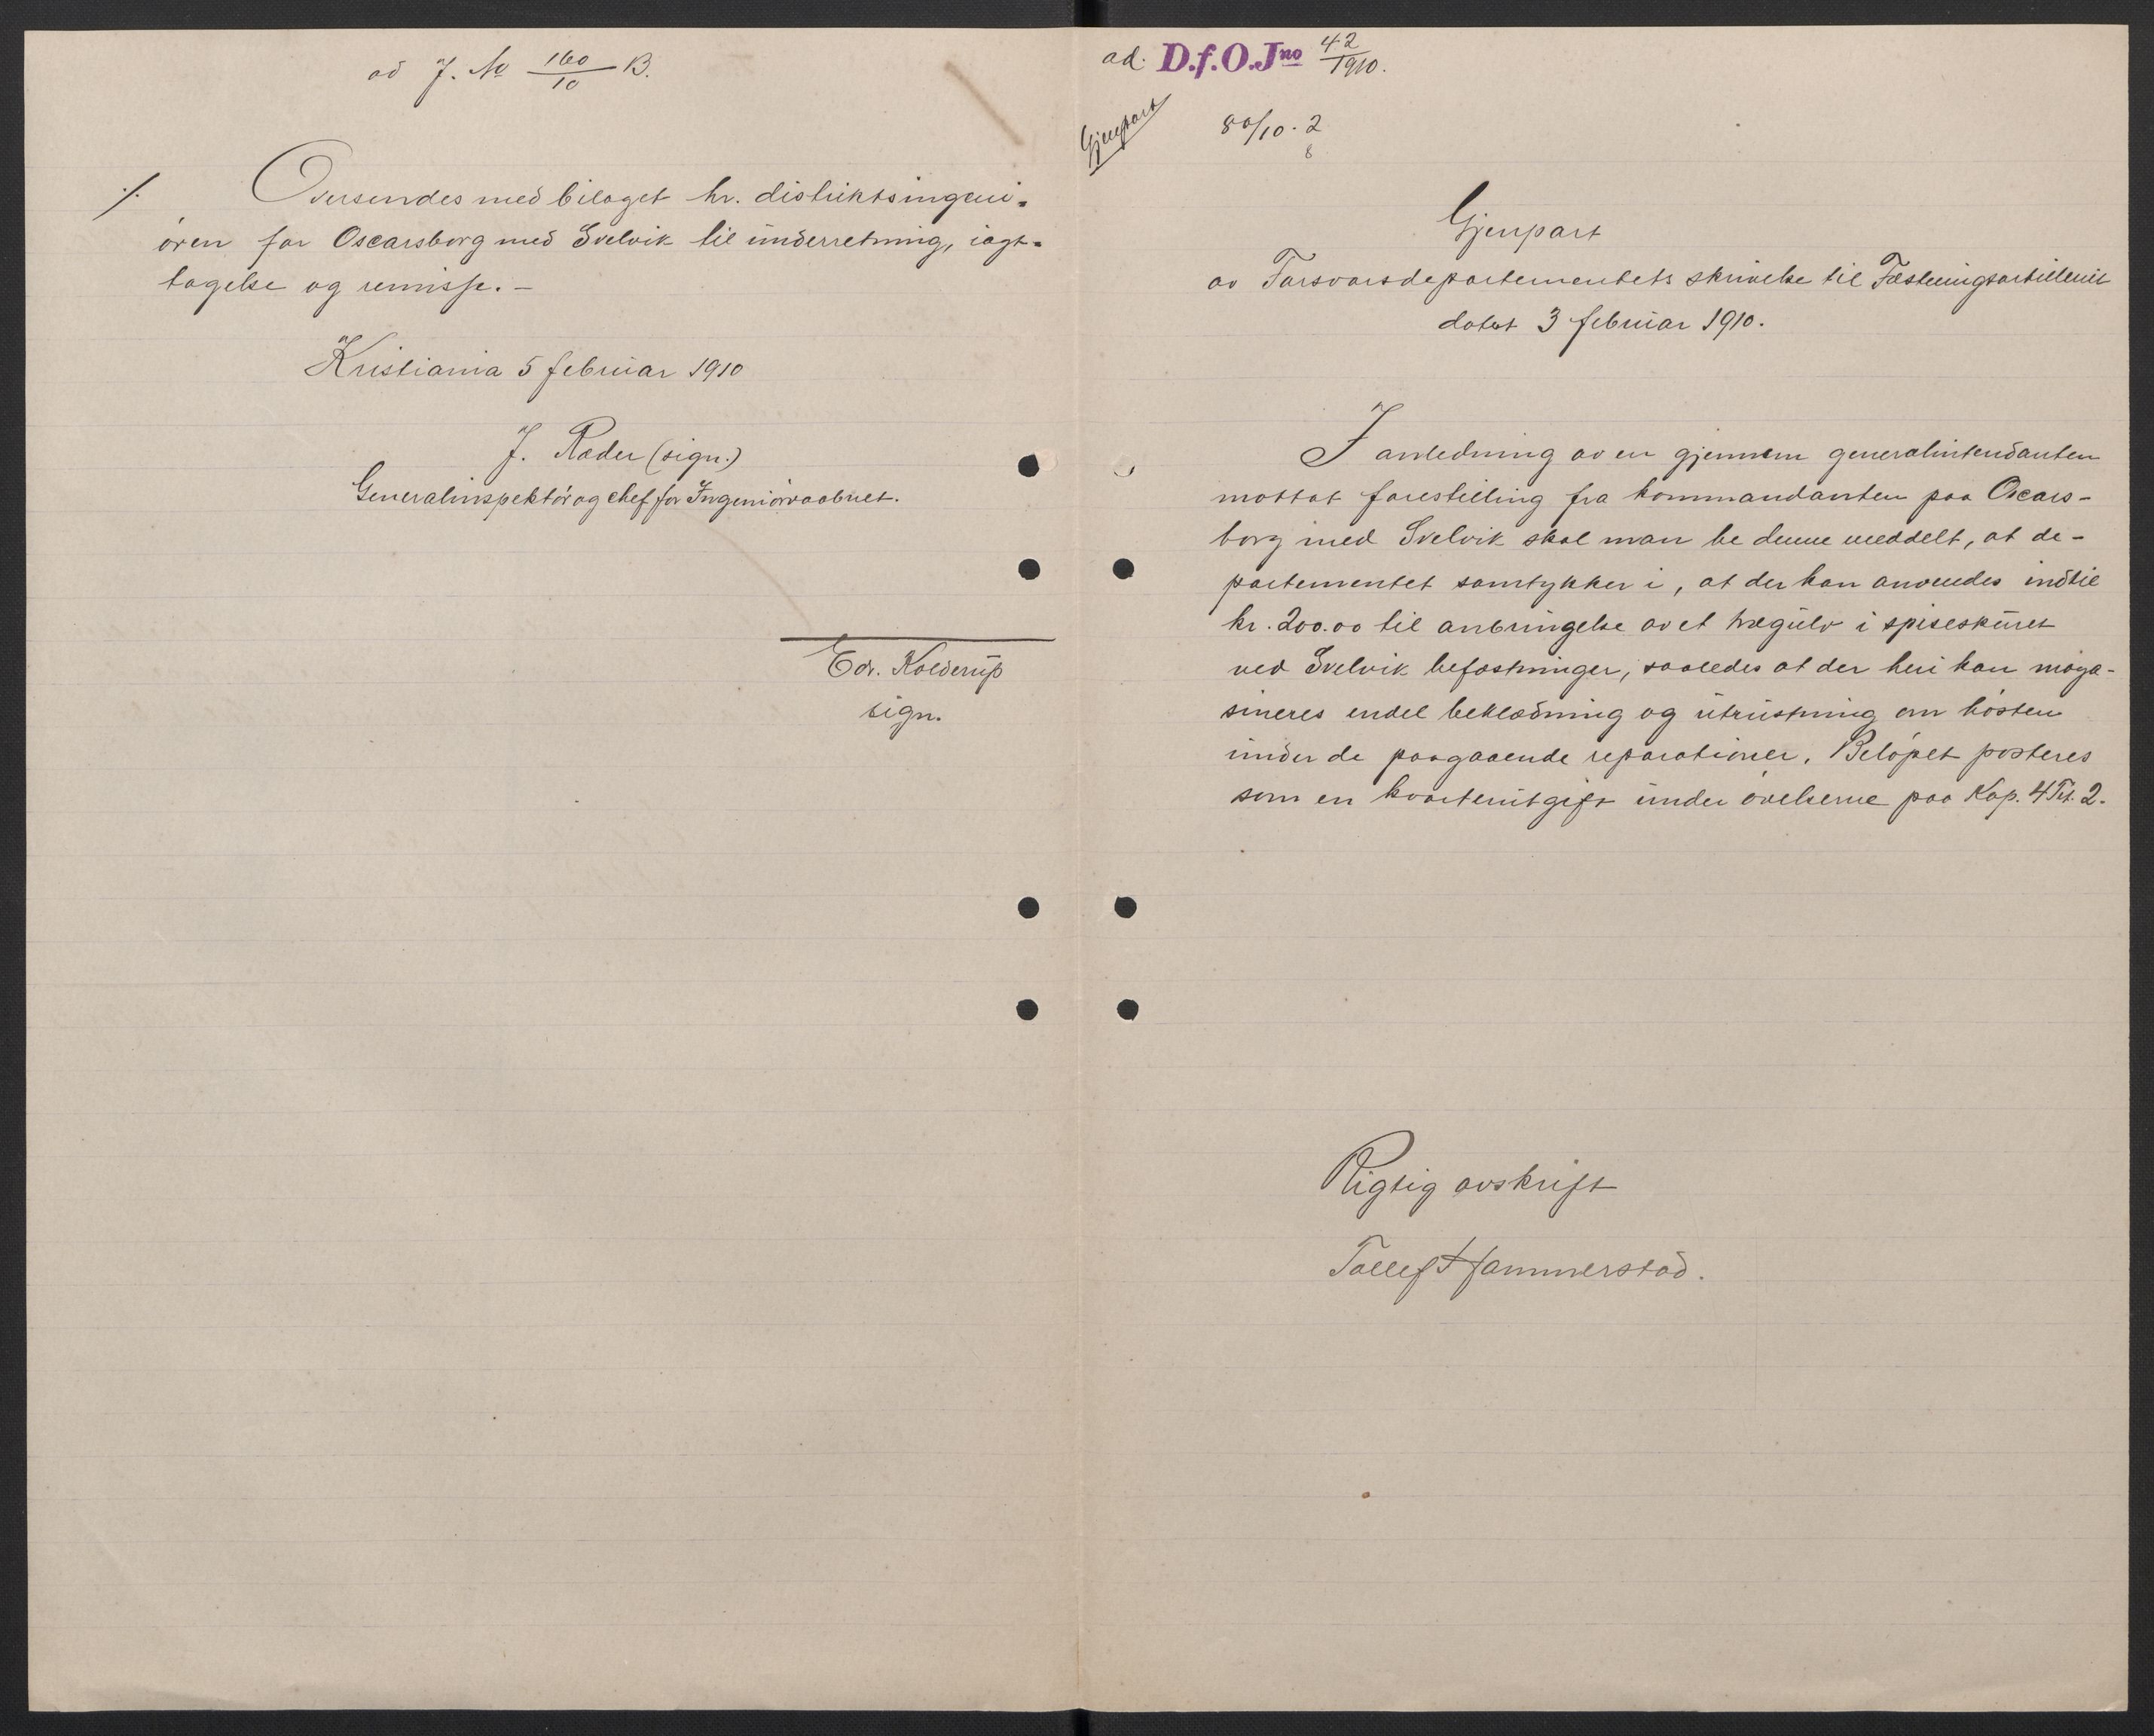 ad J. No 160/10 B.
./. Oversendes med bilaget hr. distriktsingeni-
øren for Oscarsborg med Svelvik til underretning, iagt-
tagelse og remisse. –
Kristiania 5 februar 1910
J. Ræder (sign.)
Generalinspektør og chef for Ingeniørvaabnet.
Edv. Kolderup
sign.
ad. D.f.O.Jno 42/1910.
Gjenpart
80/10. 2
8
Gjenpart
av Forsvarsdepartementets skrivelse til Fæstningsartilleriet
datert 3 februar 1910.
I anledning av en gjennem generalintendanten
mottat forestilling fra kommandanten paa Oscars-
borg med Svelvik skal man be denne meddelt, at de-
partementet samtykker i, at der kan anvendes indtil
kr. 200.00 til anbringelse av et trægulv i spiseskuret
ved Svelvik befæstninger, saaledes at der heri kan maga-
sineres endel beklædning og utrustning om høsten
under de paagaaende reparationer. Beløpet posteres
som en kvarterutgift under øvelserne paa Kap. 4 Tit. 2.
Rigtig avskrift
Tollef Hammerstad.